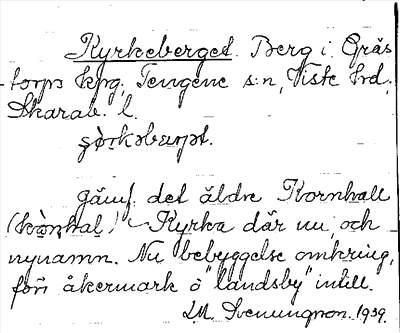 Kyrkeberget. Berg i Gräs
torps kpg, Tengene s:n, Viste hrd,
Skarab. l.
jämf. det äldre Kornhall
Kyrka där nu, och
nynamn. Nu bebyggelse omkring,
förr åkermark o "landsby" intill.
1939.